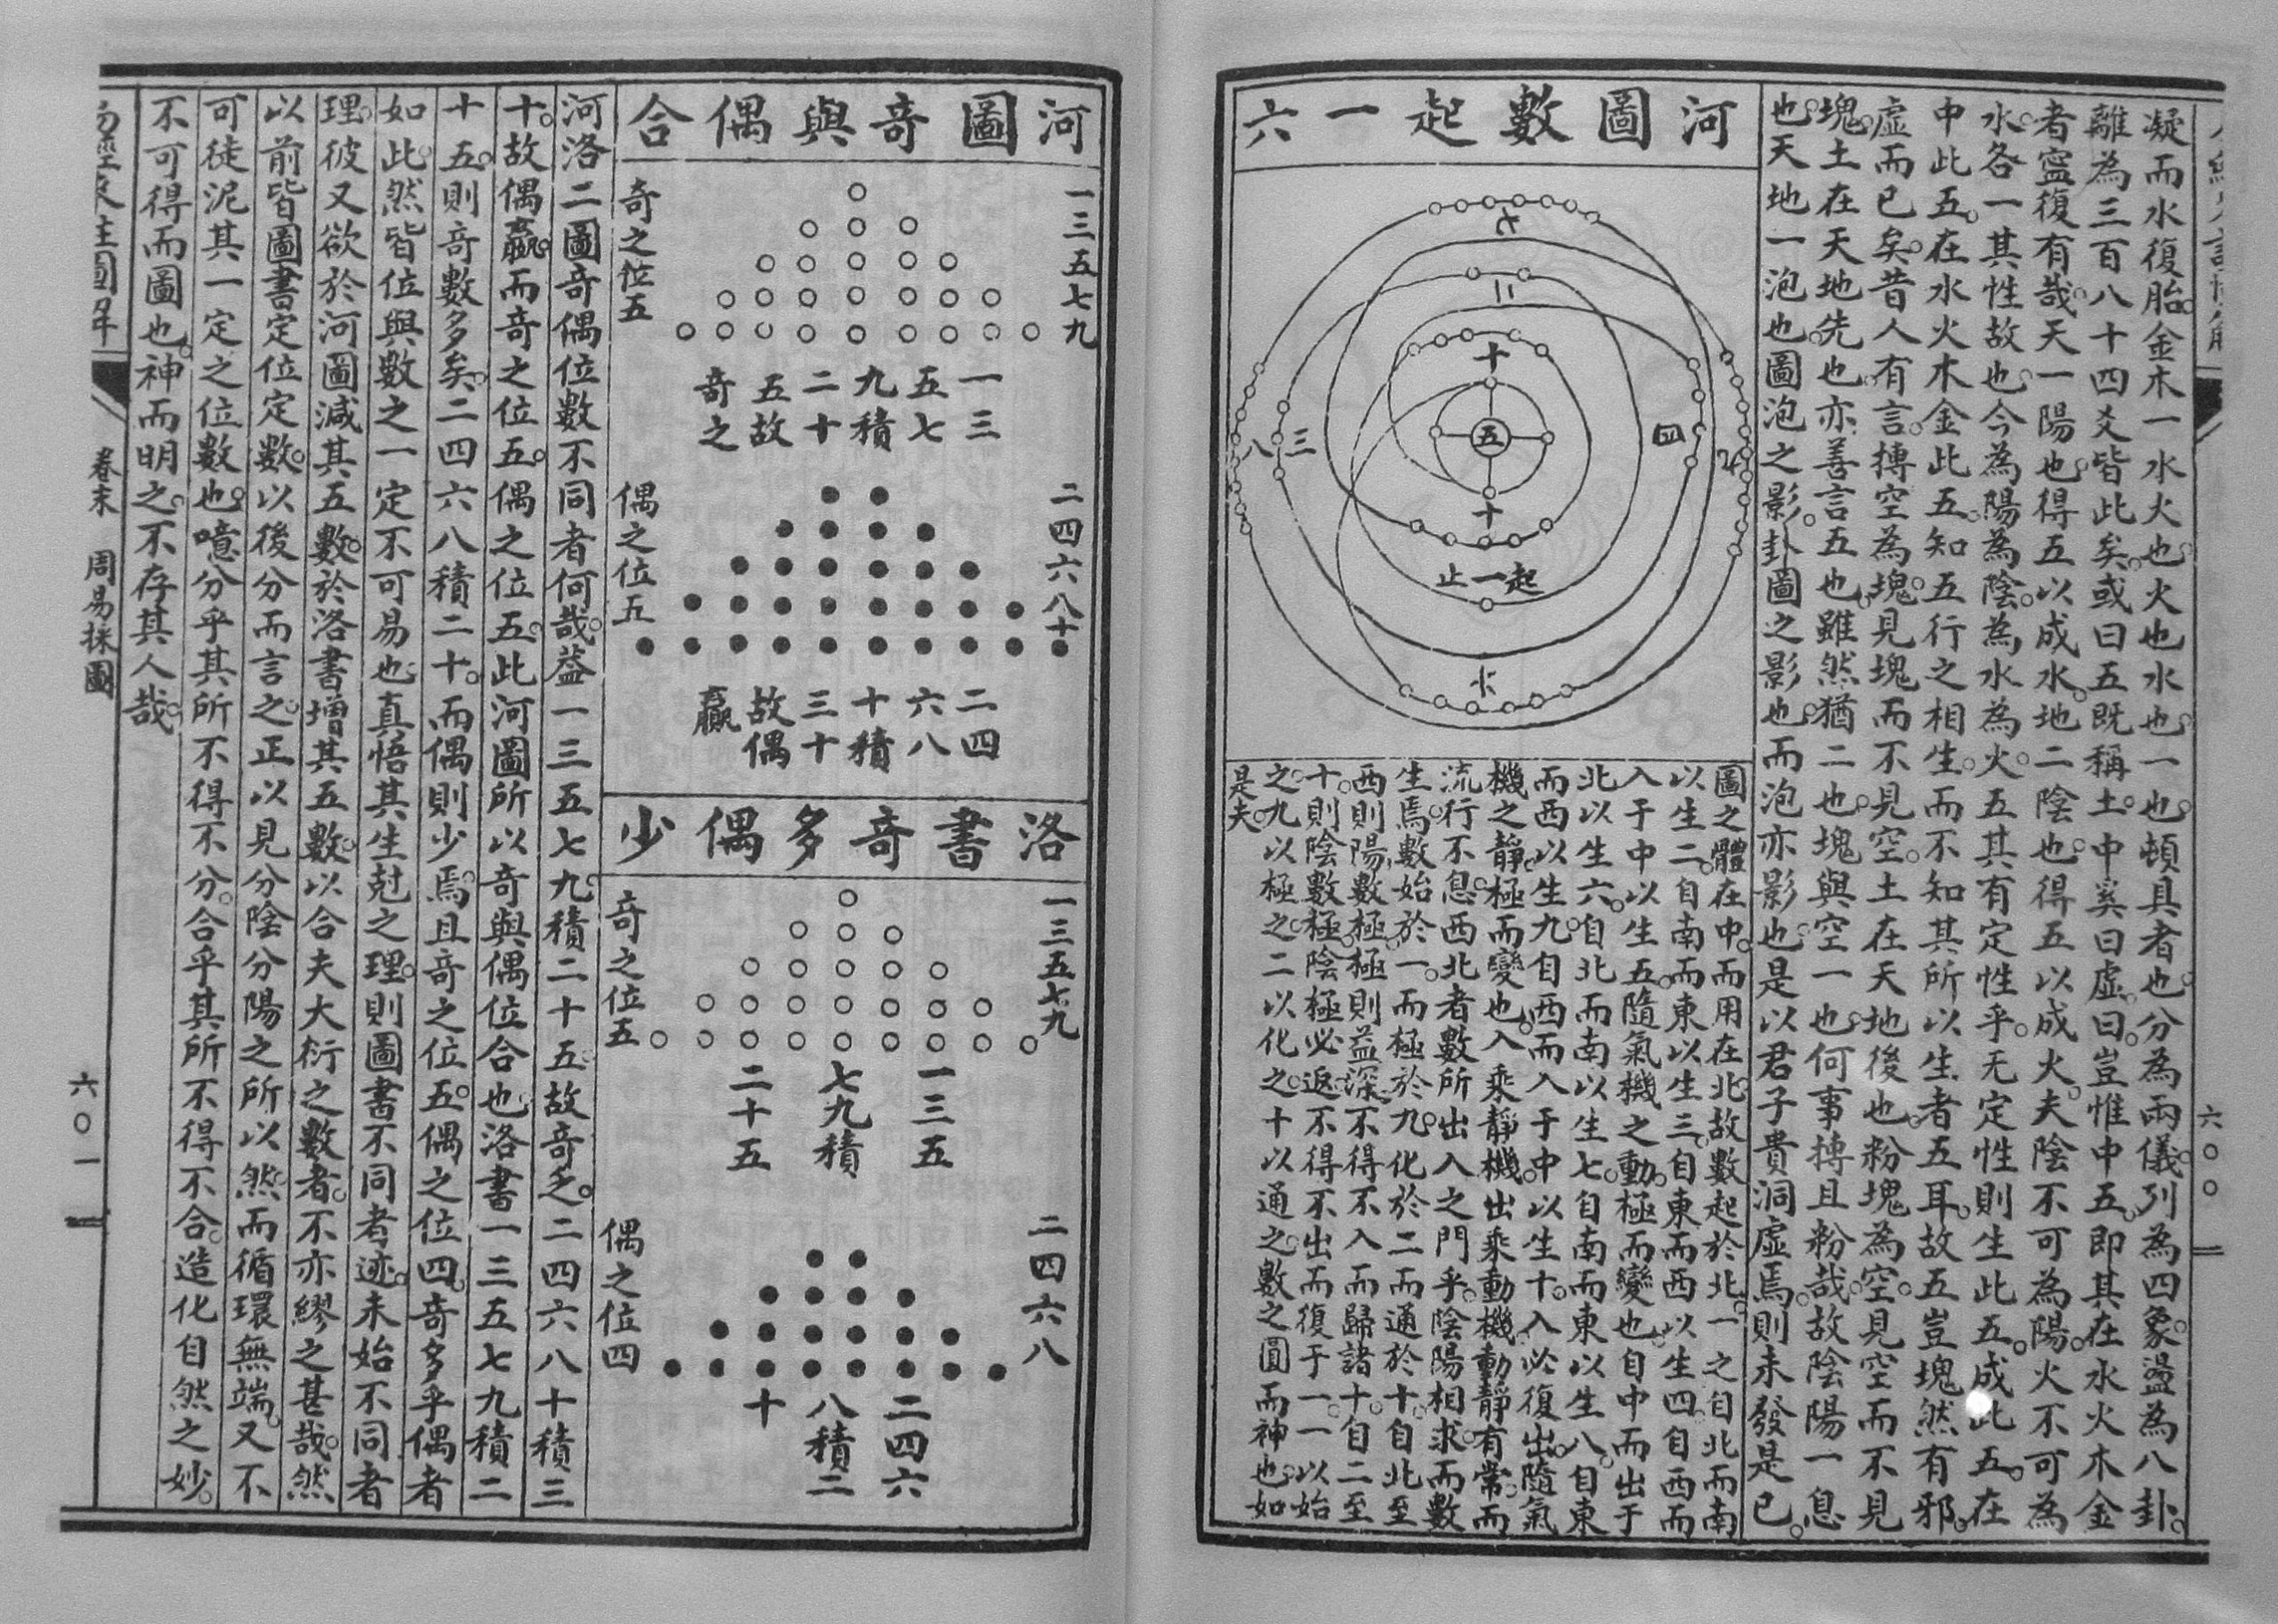 凝而水復胎金木一水火也火也水也一也頓具者也分為兩儀列為四象盪為八卦
離為三百八十四爻皆此矣或曰五既稱土中奚曰虛曰豈惟中五即其在水火木金
者寧復有哉天一陽也得五以成水地二陰也得五以成火夫陰不可為陽火不可為
水各一其性故也今為陽為陰為水為火五其有定性乎无定性則生此五成此五在
中此五在水火木金此五知五行之相生而不知其所以生者五耳故五豈塊然有邪
虛而已矣昔人有言摶空為塊見塊而不見空土在天地後也粉塊為空見空而不見
塊土在天地先也亦善言五也雖然猶二也塊與空一也何事摶且粉哉故陰陽一息
也天地一泡也圖泡之影卦圖之影也而泡亦影也是以君子貴洞虛焉則未發是已
河圖數起一六
七
二
十
五
三
八
四
九
十
起一止
六
圖之體在中而用在北故數起於北一之自北而南
以生二自南而東以生三自東而西以生四自西而
入于中以生五隨氣機之動極而變也自中而出于
北以生六自北而南以生七自南而東以生八自東
而西以生九自西而入于中以生十入必復出隨氣
機之靜極而變也入乘靜機出乘動機動靜有常而
流行不息西北者數所出入之門乎陰陽相求而數
生焉數始於一而極於九化於二而通於十自北至
西則陽數極極則益深不得不入而歸諸十自二至
十則陰數極陰極必返不得不出而復于一一以始
之九以極之二以化之十以通之數之圓而神也如
是夫
六〇〇
河圖奇與偶合
一三五七九
奇之位五
一三
五七
九積
二十
五故
奇之
二四六八十
偶之位五
二四
六八
十積
三十
故偶
贏
洛書奇多偶少
一三五七九
奇之位五
一三五
七九積
二十五
二四六八
偶之位四
二四六
八積二
十
河洛二圖奇偶位數不同者何哉蓋一三五七九積二十五故奇乏二四六八十積三
十故偶贏而奇之位五偶之位五此河圖所以奇與偶位合也洛書一三五七九積二
十五則奇數多矣二四六八積二十而偶則少焉且奇之位五偶之位四奇多乎偶者
如此然皆位與數之一定不可易也真悟其生尅之理則圖書不同者迹未始不同者
理彼又欲於河圖減其五數於洛書增其五數以合夫大衍之數者不亦繆之甚哉然
以前皆圖書定位定數以後分而言之正以見分陰分陽之所以然而循環無端又不
可徒泥其一定之位數也噫分乎其所不得不分合乎其所不得不合造化自然之妙
不可得而圖也神而明之不存其人哉
易經來註圖解
卷末
周易採圖
六〇一